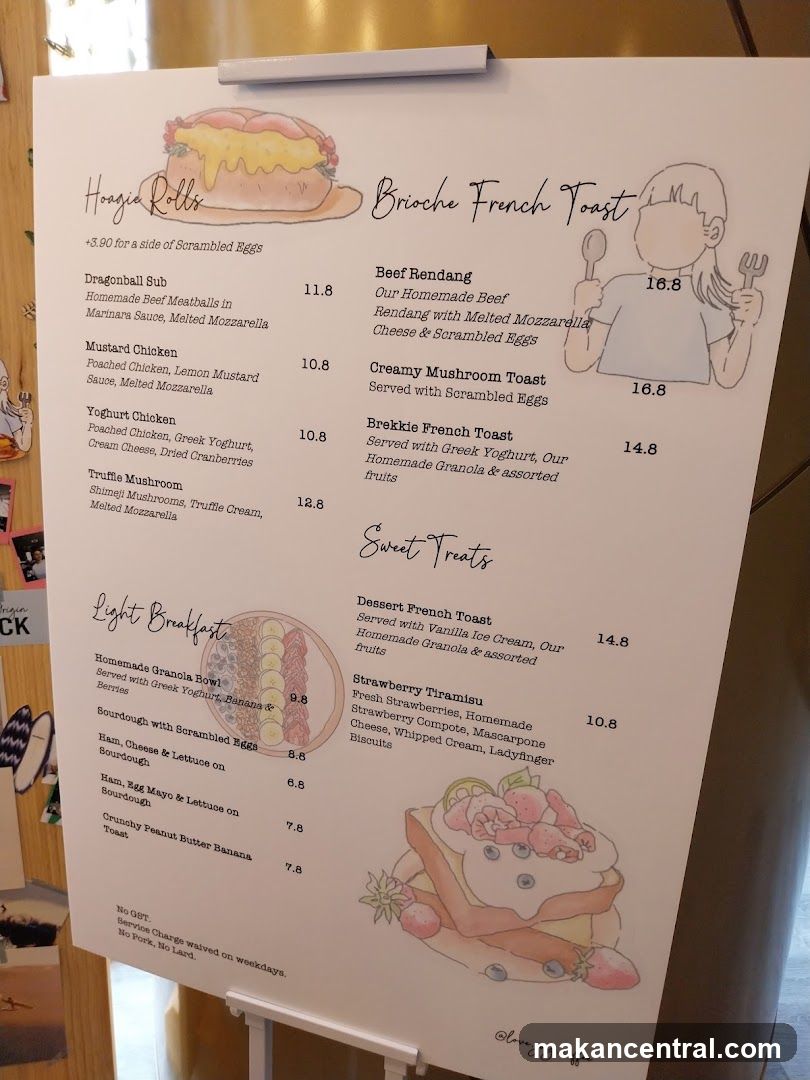 Hoagie Rolls
+3.90 for a side of Scrambled Eggs
Dragonball Sub
11.8
Homemade Beef Meatballs in
Marinara Sauce, Melted Mozzarella
Mustard Chicken
10.8
Poached Chicken, Lemon Mustard
Sauce, Melted Mozzarella
Yoghurt Chicken
10.8
Poached Chicken, Greek Yoghurt,
Cream Cheese, Dried Cranberries
Truffle Mushroom
12.8
Shimeji Mushrooms, Truffle Cream,
Melted Mozzarella
Light Breakfast
Homemade Granola Bowl
9.8
Served with Greek Yoghurt, Banana &
Berries
Sourdough with Scrambled Eggs
8.8
Ham, Cheese & Lettuce on
Sourdough
6.8
Ham, Egg Mayo & Lettuce on
Sourdough
7.8
Crunchy Peanut Butter Banana
Toast
7.8
No GST.
Service Charge waived on weekdays.
No Pork, No Lard.
Brioche French Toast
Beef Rendang
16.8
Our Homemade Beef
Rendang with Melted Mozzarella
Cheese & Scrambled Eggs
Creamy Mushroom Toast
16.8
Served with Scrambled Eggs
Brekkie French Toast
14.8
Served with Greek Yoghurt, Our
Homemade Granola & assorted
fruits
Sweet Treats
Dessert French Toast
14.8
Served with Vanilla Ice Cream, Our
Homemade Granola & assorted
fruits
Strawberry Tiramisu
10.8
Fresh Strawberries, Homemade
Strawberry Compote, Mascarpone
Cheese, Whipped Cream, Ladyfinger
Biscuits
makancentral.com